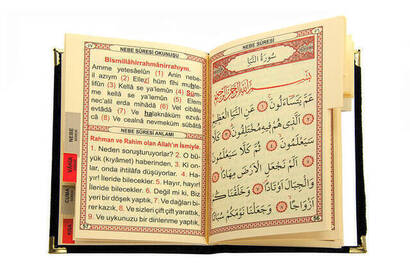 NEBE SÛRESİ OKUNUŞU
Bismillâhirrahmânirrahıym.
Amme yetesâelûn (1) Anin nebe-
il azıym (2) Ellezî hüm fîhi muhte-
lifûn (3) Kellâ se ya'lemûn (4) Süm-
me kellâ se ya'lemûn (5) Elem
nec'alil erda mihâdâ (6) Vel cibâle
evtâdâ (7) Ve halaknâküm ezvâ-
câ (8) Ve cealnâ nevmeküm sübâtâ
NEBE SÛRESİ ANLAMI
Rahman ve Rahim olan Allah'ın İsmiyle.
1. Neden soruşturuyorlar? 2. O bü-
yük (kıyâmet) haberinden, 3. Ki on-
lar, onda ihtilâfa düşüyorlar. 4. Ha-
yır! İleride bilecekler. 5. Hayır, hayır!
İleride bilecekler. 6. Değil mi ki, Biz
yeri bir döşek yaptık. 7. Ve dağları bi-
rer kazık, 8. Ve sizleri çift çift yarattık,
9. Ve uykunuzu bir dinlenme yaptık,
NEBE
CUMA
NEBE SÛRESİ
سُورَةُ النَّبَأِ
بِسْمِ اللّٰهِ الرَّحْمٰنِ الرَّحِيمِ
عَمَّ يَتَسَاءَلُونَ ۝١ عَنِ النَّبَإِ الْعَظِيمِ
۝٢ الَّذِى هُمْ فِيهِ مُخْتَلِفُونَ ۝٣ كَلَّا
سَيَعْلَمُونَ ۝٤ ثُمَّ كَلَّا سَيَعْلَمُونَ
۝٥ أَلَمْ نَجْعَلِ الْأَرْضَ مِهَادًا ۝٦
وَالْجِبَالَ أَوْتَادًا ۝٧ وَخَلَقْنَاكُمْ
أَزْوَاجًا ۝٨ وَجَعَلْنَا نَوْمَكُمْ سُبَاتًا